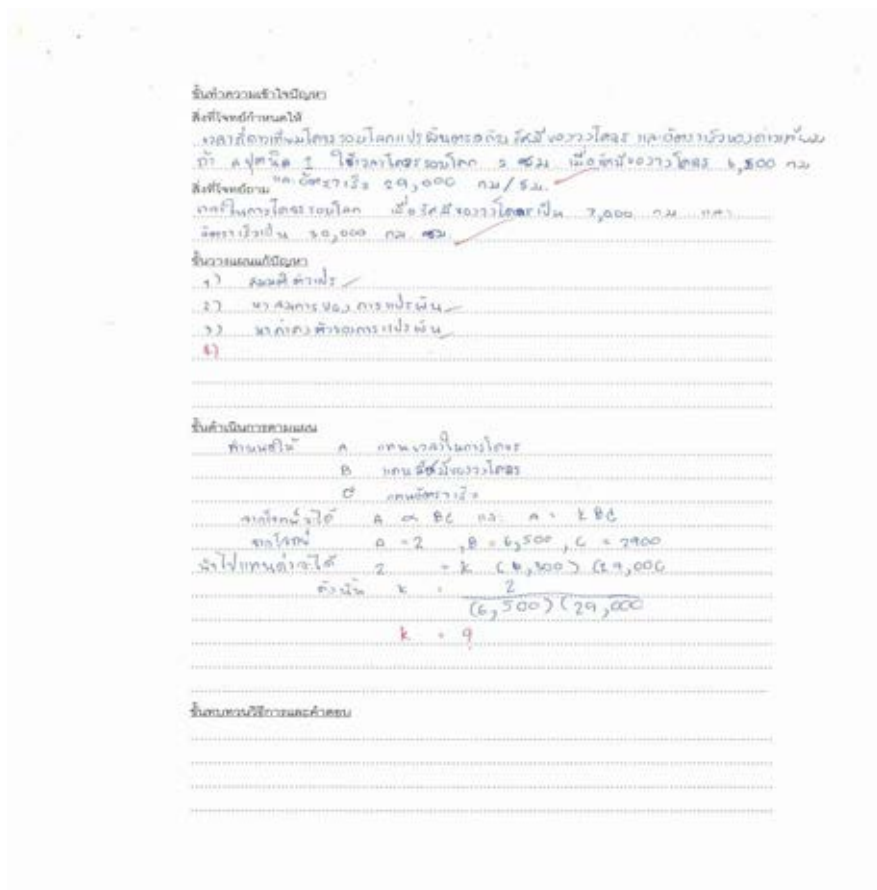 ขั้นทำความเข้าใจปัญหา
สิ่งที่โจทย์กำหนดให้
เวลาที่ดาวเทียมโคจรรอบโลกแปรผันตรงกับรัศมีของวงโคจร และอัตราเร็วของดาวเทียม
ถ้า 1 ใช้เวลาโคจรรอบโลก 2 ซม เมื่อรัศมีของวงโคจร 6,500 กม
และอัตราเร็ว 29,000 กม/ชม.
สิ่งที่โจทย์ถาม
เวลาในการโคจรรอบโลก เมื่อรัศมีของวงโคจรเป็น 7,000 กม และ
อัตราเร็วเป็น 30,000 กม ชม.
ขั้นวางแผนแก้ปัญหา
1) สมมติตัวแปร
2) หาสมการของการแปรผัน
3) หาค่าคงตัวของการแปรผัน
4)
ขั้นดำเนินการตามแผน
กำหนดให้ A แทนเวลาในการโคจร
B แทนรัศมีของวงโคจร
C แทนอัตราเร็ว
จากโจทย์ จะได้ A ∝ BC และ A = kBC
จากโจทย์ A = 2 , B = 6,500 , C = 2900
นำไปแทนค่าจะได้ 2 = k (6,500) (29,000
ดังนั้น k = 2
(6,500) (29,000
k = ?
ขั้นทบทวนวิธีการและคำตอบ